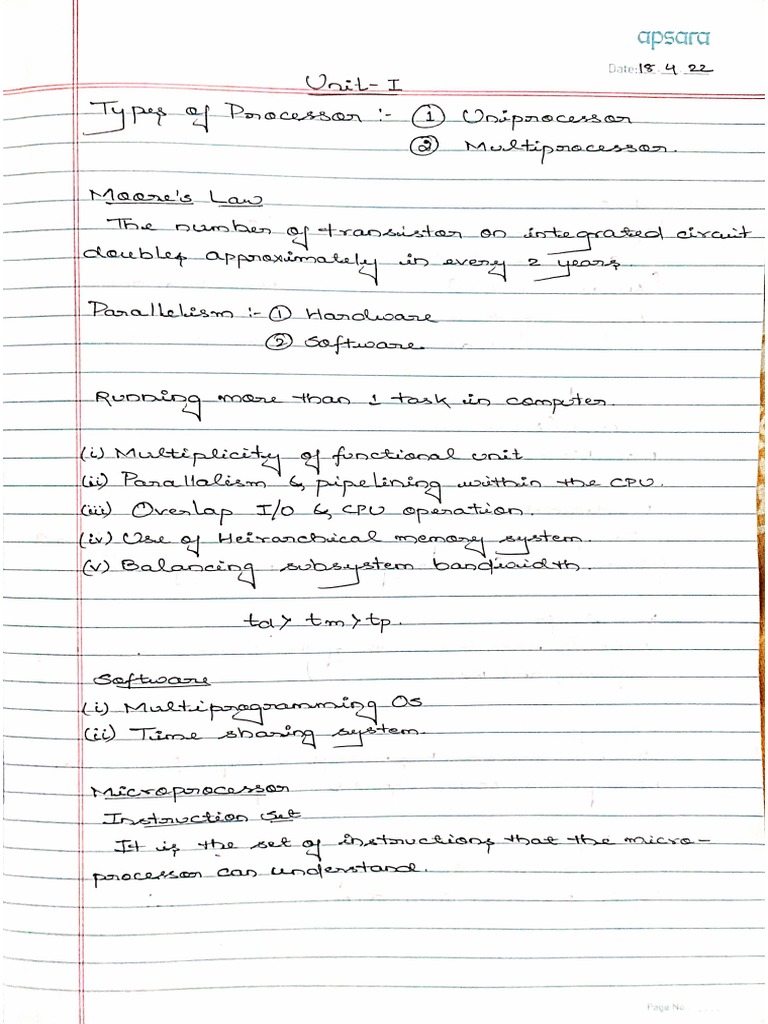 apsara
Date: 18 4 22
Unit-I
Types of Processor :- ① Uniprocessor
② Multiprocessor.
Moore's Law
The number of transistor on integrated circuit
doubles approximately in every 2 years.
Parallelism :- ① Hardware
② Software
Running more than 1 task in computer.
(i) Multiplicity of functional unit
(ii) Parallalism & pipelining within the CPU.
(iii) Overlap I/O & CPU operation.
(iv) Use of Heirarchical memory system.
(v) Balancing subsystem bandwidth.
td> tm>tp.
Software
(i) Multiprogramming OS
(ii) Time sharing system.
Microprocessor
Instruction Set
It is the set of instructions that the micro-
processor can understand.
Page No.